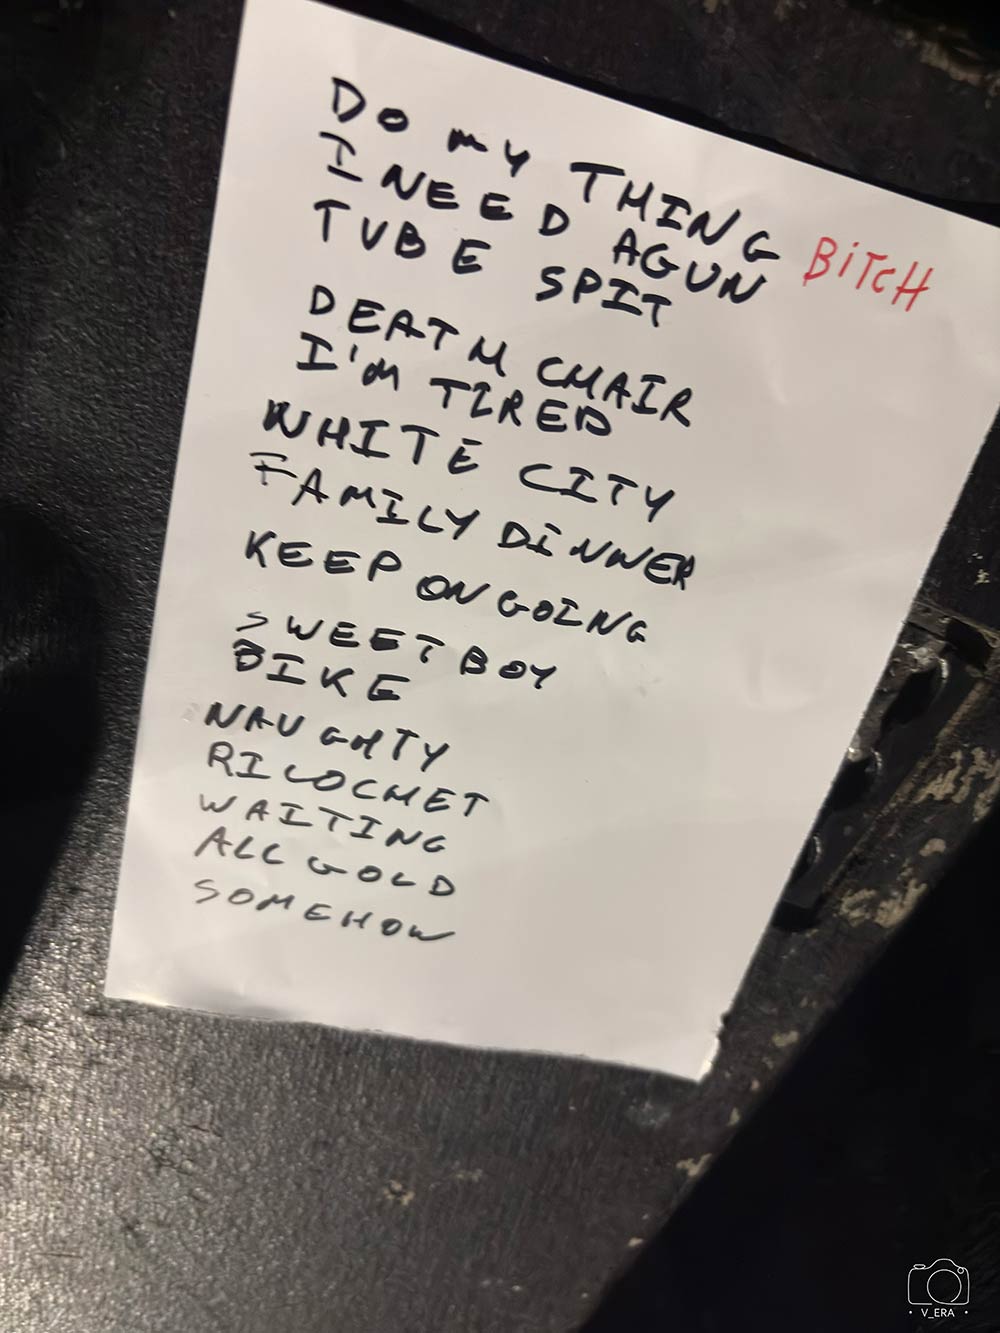 DO MY THING BiTCH
I NEED A GUN
TUBE SPIT
DEATH CHAIR
I'M TIRED
WHITE CITY
FAMILY DINNER
KEEP ON GOING
SWEET BOY
BIKE
NAUGHTY
RICOCHET
WAITING
ALL GOLD
SOMEHOW
• V_ERA •